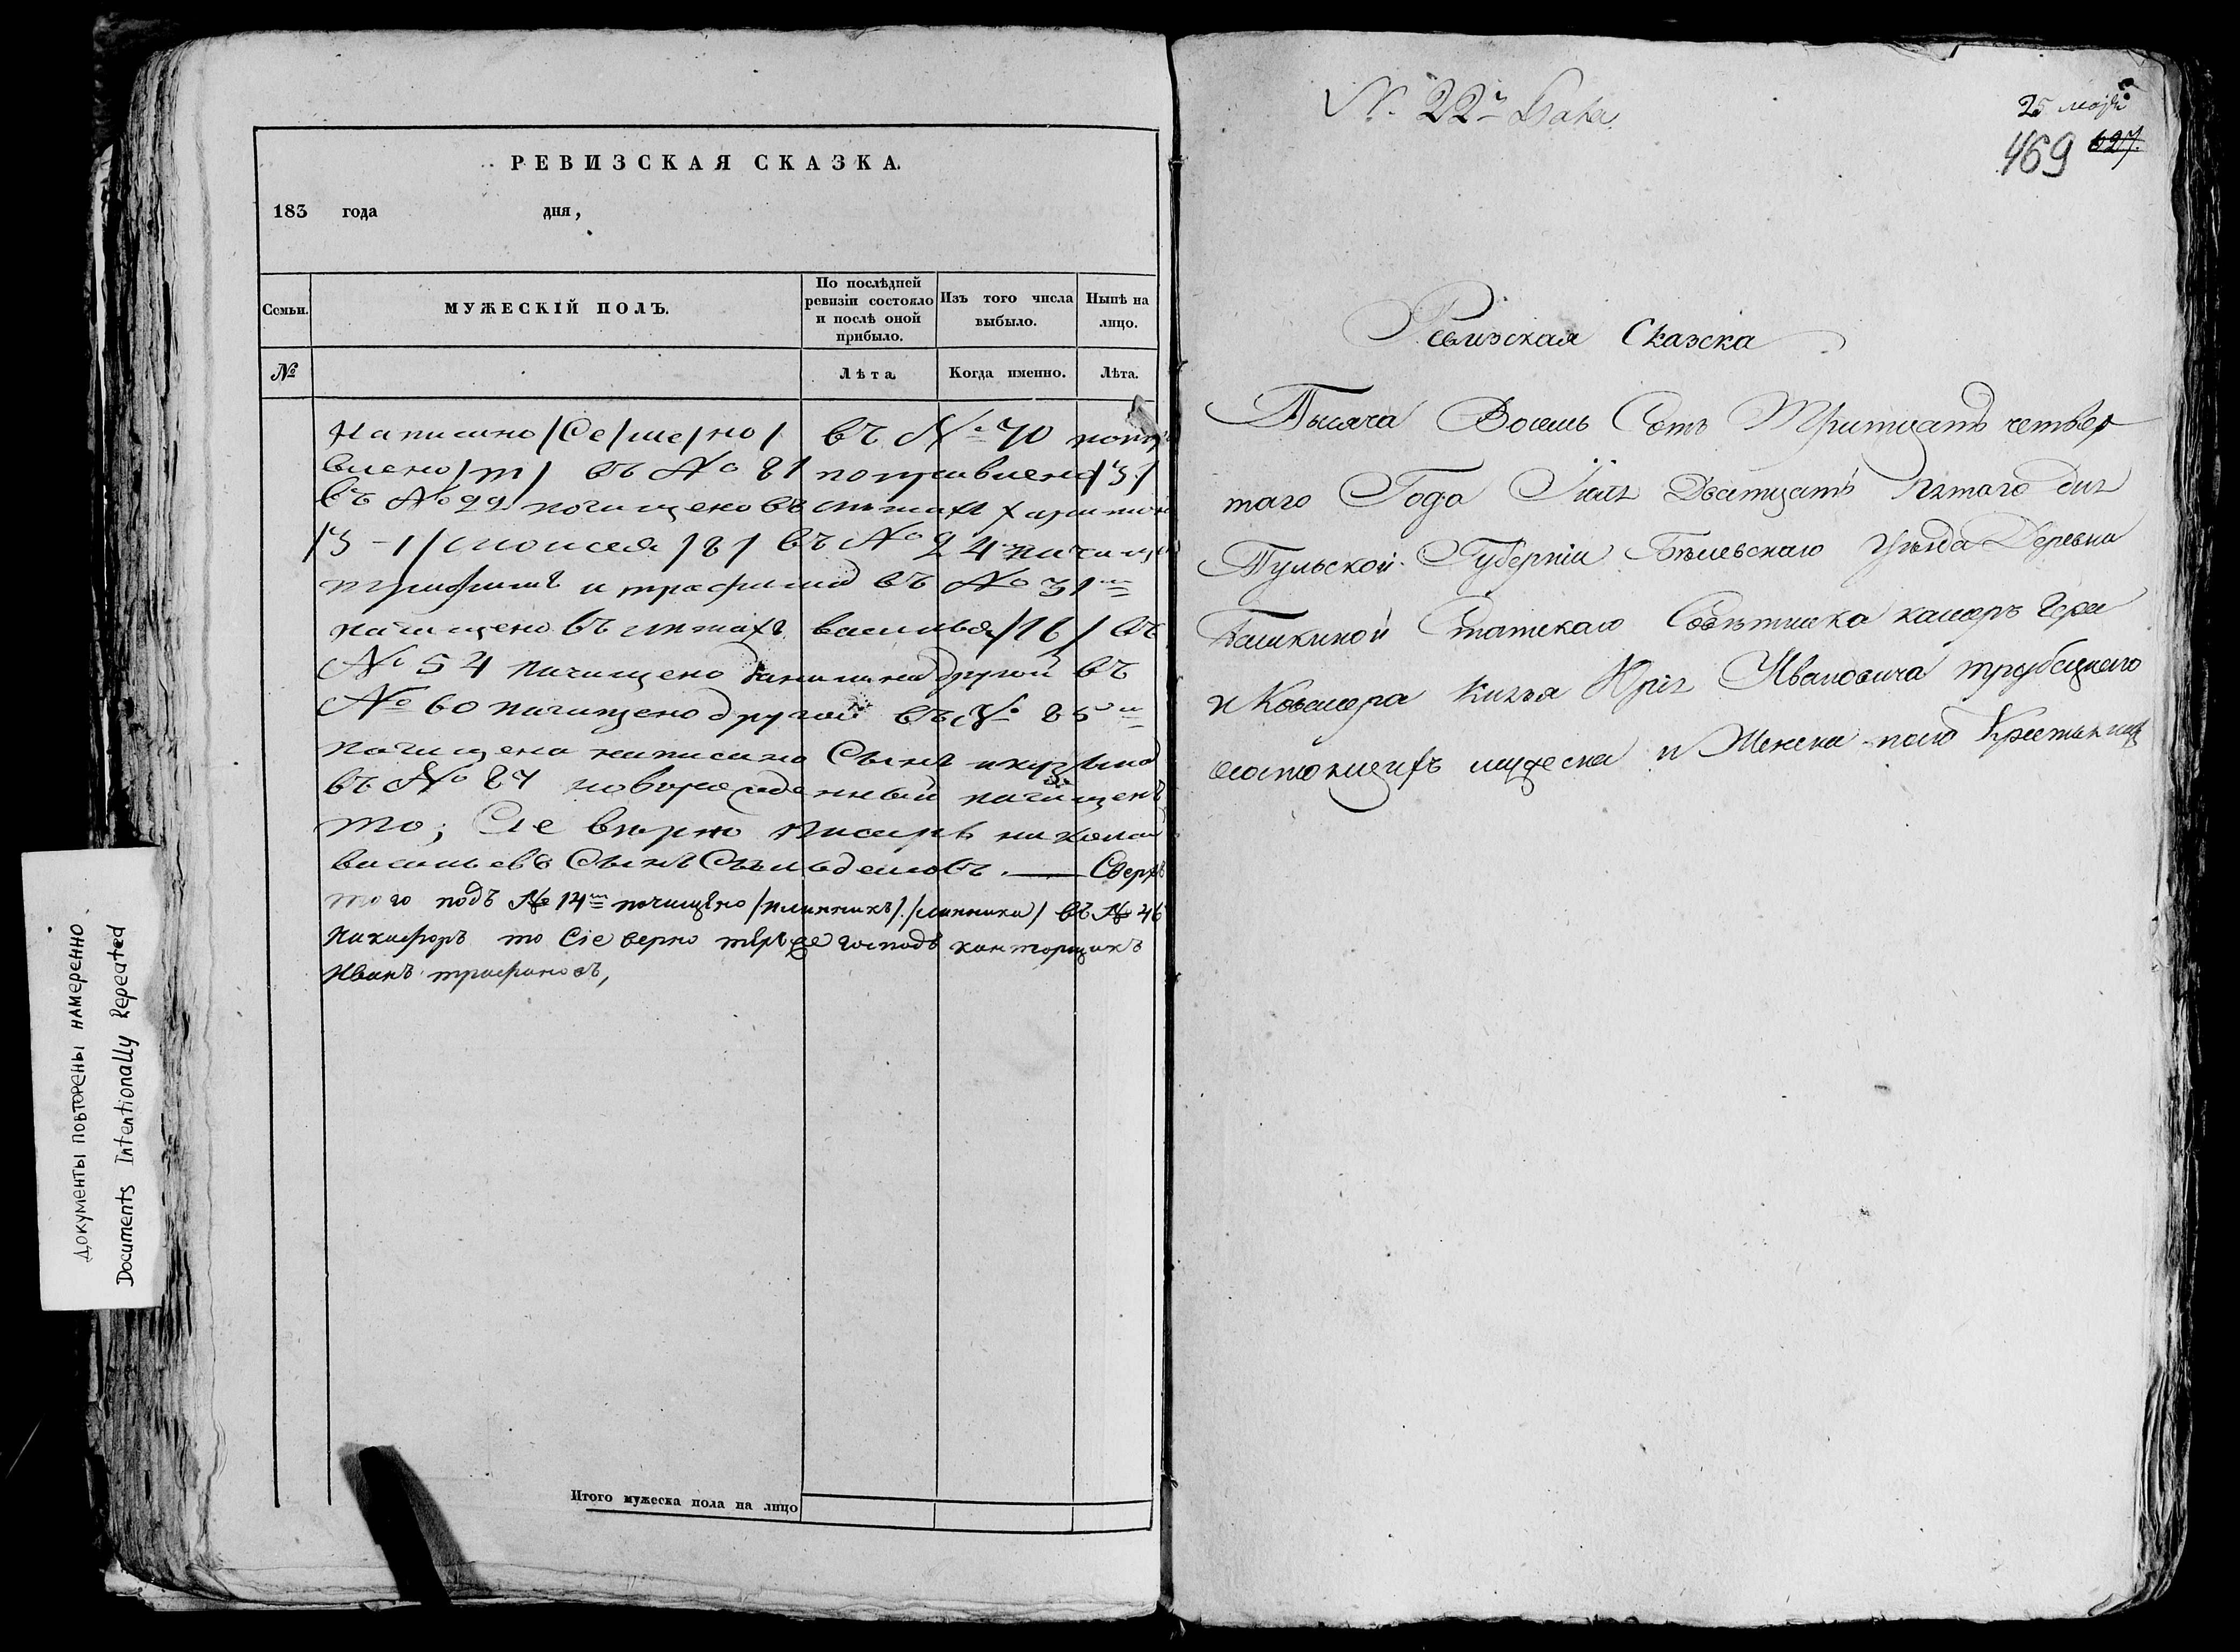 РЕВИЗСКАЯ СКАЗКА.
183 года дня,
Семьи.
МУЖЕСКІЙ ПОЛЪ.
По послѣдней
ревизіи состояло
и послѣ оной
прибыло.
Изъ того числа
выбыло.
Нынѣ на
лицо.
№
Лѣта
Когда именно.
Лѣта.
Написано /Се/ме/но/ въ № 70 попра
влено /т/ въ № 81 поправлено /3/
въ № 22 почищено въ летахъ
/3-1/ моисея /8/ въ № 24 почище
трифимъ и трафимъ въ № 31м
почищено въ летахъ василья /16/ въ
№ 54 почищено данила другой въ
№ 60 почищено другой въ № 85м
почищена написано Сынъ
въ № 87 новорожденный почищен
то; Сіе верно писарь николай
васильевъ Сынъ ——— Сверхъ
того подъ № 14м почищено въ № 46
Никифоръ то Сіе верно господъ канторщикъ
Иванъ трафиновъ,
Итого мужеска пола на лицо
N. 22
25 маія
469 627.
Ревизская Сказска
Тысяча Восемь Сотъ Тритцать четвер
таго Года Маія Дватцать пятаго дня
Тульской Губерніи Бѣлевскаго Уѣзда Деревни
Башкиной Статскаго Совѣтника камеръ Гера
и Ковалера Князья Юрія Ивановича трубецкаго
состоящихъ мужеска и Женска пола Крестьянахъ
Документы повторены намеренно
Documents Intentionally Repeated